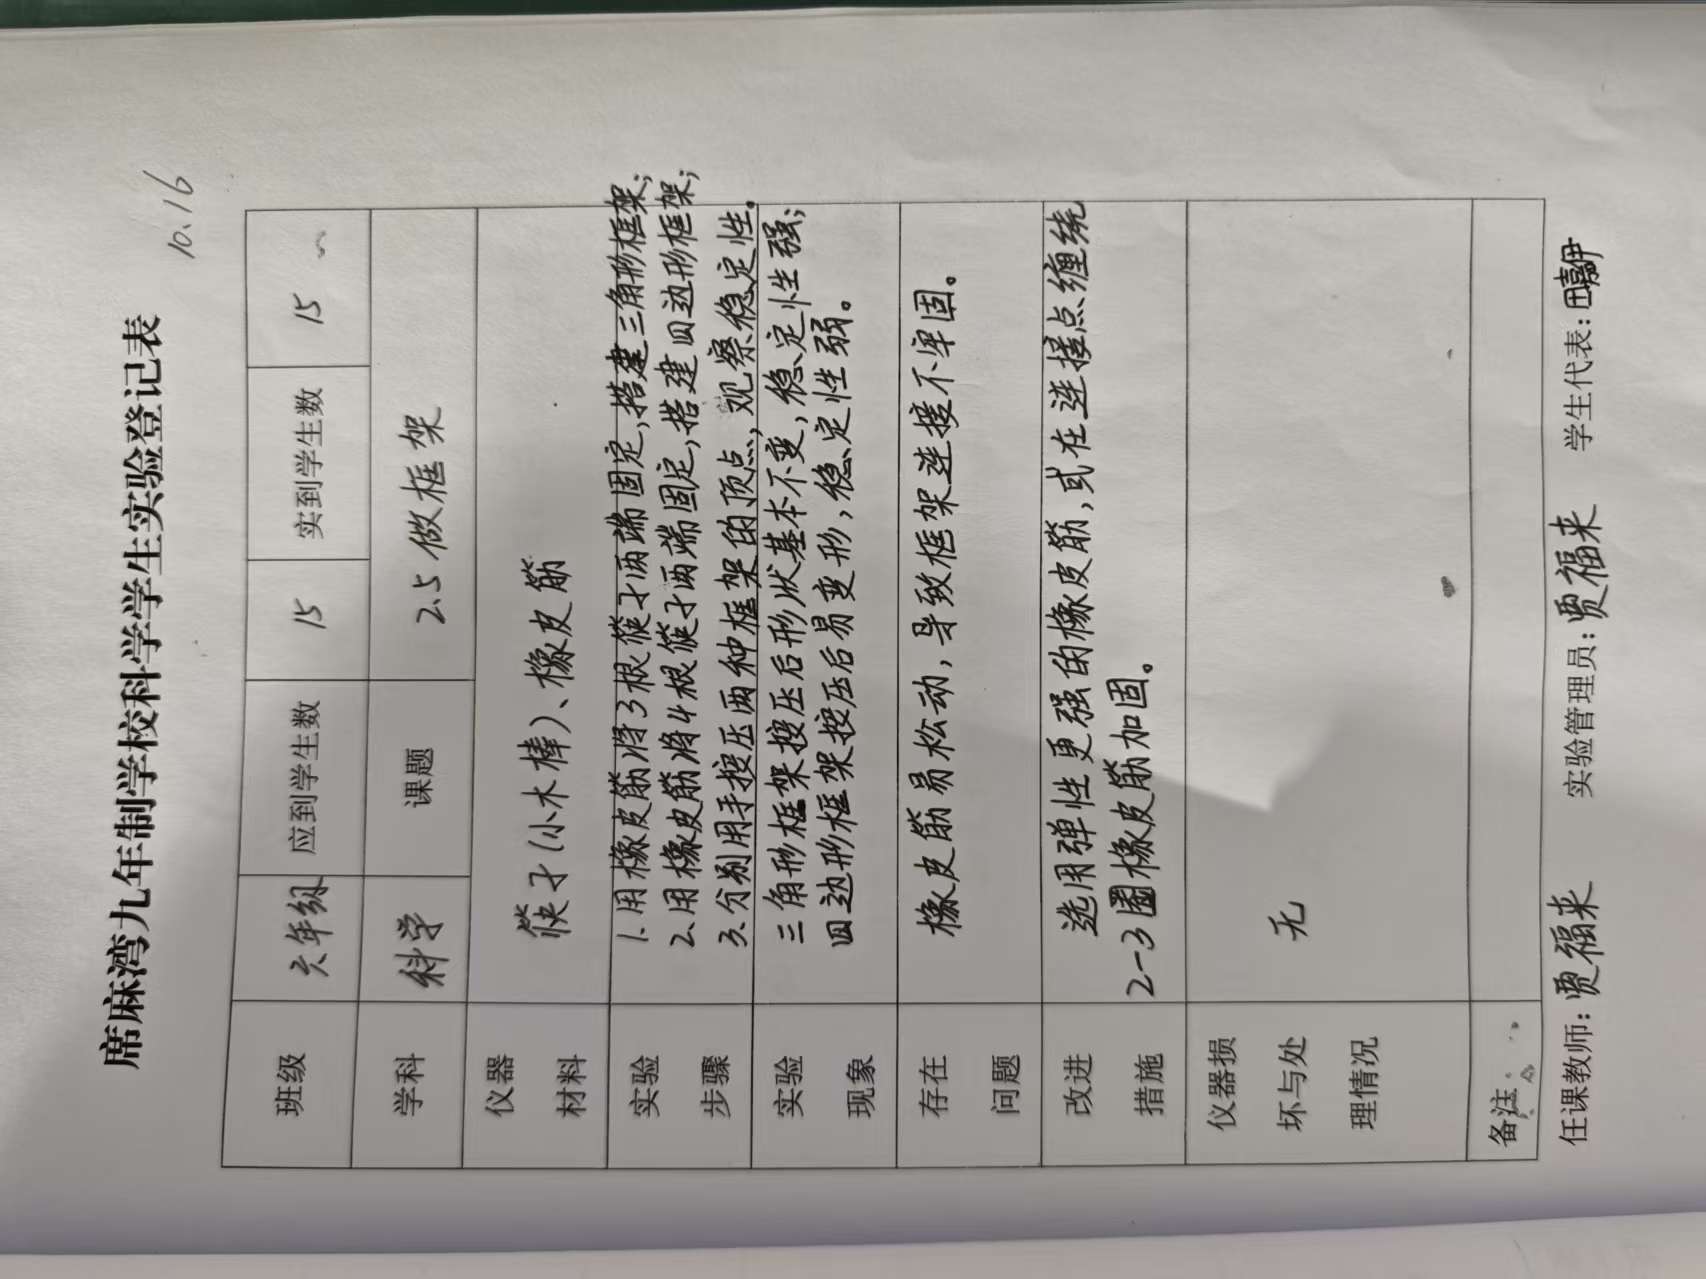 席麻湾九年制学校科学学生实验登记表
10.16
班级 六年级 应到学生数 15 实到学生数 15
学科 科学 课题 2.5 做框架
仪器
材料
筷子(小木棒)、橡皮筋
实验
步骤
1. 用橡皮筋将3根筷子两端固定,搭建三角形框架;
2. 用橡皮筋将4根筷子两端固定,搭建四边形框架;
3. 分别用手按压两种框架的顶点,观察稳定性。
实验
现象
三角形框架按压后形状基本不变,稳定性强;
四边形框架按压后易变形,稳定性弱。
存在
问题
橡皮筋易松动,导致框架连接不牢固。
改进
措施
选用弹性更强的橡皮筋,或在连接点缠绕
2-3圈橡皮筋加固。
仪器损
坏与处
理情况
无
备注
任课教师: 贾福来 实验管理员: 贾福来 学生代表: 田嘉伊